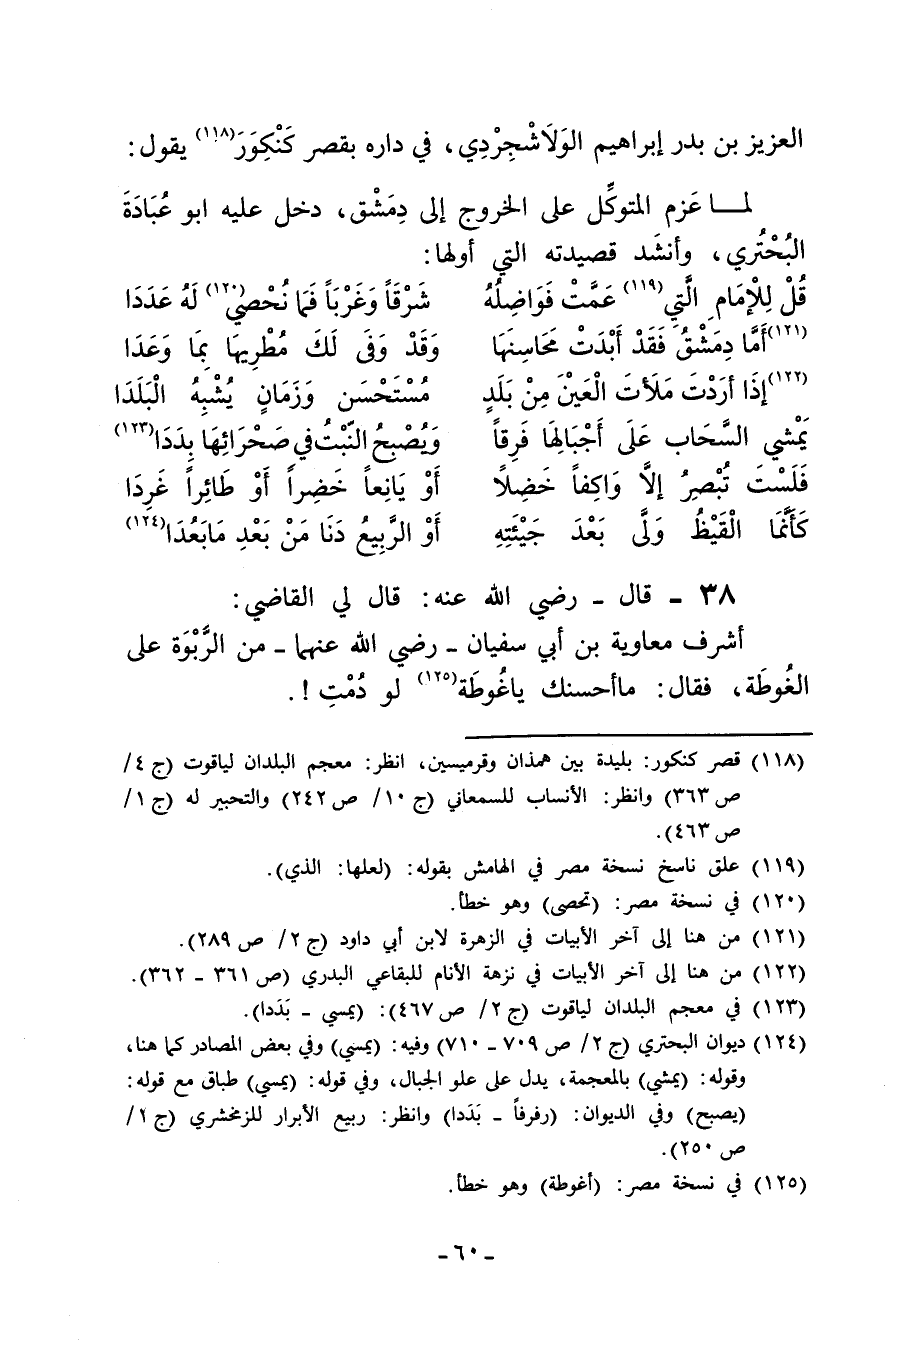 العزيز بن بدر إبراهيم الوَلَاشْجِرْدِي، في داره بقصر كَنْكِوَرَ(١١٨) يقول:
لمـــا عَزم المتوكِّل على الخروج إلى دِمَشْق، دخل عليه ابو عُبَادَةَ
البُحْتُري، وأنشَد قصيدته التي أولها:
قُلْ لِلْإمَامِ الَّتِي(١١٩) عَمَّتْ فَوَاضِلُهُ شَرْقاً وَغَرْبَاً فَمَا نُحْصِي(١٢٠) لَهُ عَدَدَا
(١٢١)أَمَّا دِمَشْقُ فَقَدْ أَبْدَتْ مَحَاسِنَهَا وَقَدْ وَفَى لَكَ مُطْرِيهَا بِمَا وَعَدَا
(١٢٢)إذَا أرَدْتَ مَلَأتَ الْعَيْنَ مِنْ بَلَدٍ مُسْتَحْسَنٍ وَزَمَانٍ يُشْبِهُ الْبَلَدَا
يَمْشي السَّحَاب عَلَى أَجْبَالِهَا فَرِقاً وَيُصْبحُ النَّبْتُ في صَحْرَائِهَا بِدَدَا(١٢٣)
فَلَسْتَ تُبْصِرُ إلاَّ وَاكِفاً خَضِلاً أَوْ يَانِعاً خَضِراً أَوْ طَائِراً غَرِدَا
كَأَنَّمَا الْقَيْظُ وَلَّى بَعْدَ جَيْئَتِهِ أَوْ الرَّبِيعُ دَنَا مَنْ بَعْدِ مَابَعُدَا(١٢٤)
٣٨ ـ قال ـ رضي الله عنه: قال لي القاضي:
أشرف معاوية بن أبي سفيان ـ رضي الله عنهما ـ من الرَّبْوَة على
الغُوطَة، فقال: ماأحسنك ياغُوطَة(١٢٥) لو دُمْتِ !.
(١١٨) قصر كنكور: بليدة بين همذان وقرميسين، انظر: معجم البلدان لياقوت (ج ٤/
ص ٣٦٣) وانظر: الأنساب للسمعاني (ج ١٠/ ص ٢٤٢) والتحبير له (ج ١/
ص ٤٦٣).
(١١٩) علق ناسخ نسخة مصر في الهامش بقوله: (لعلها: الذي).
(١٢٠) في نسخة مصر: (تحصى) وهو خطأ.
(١٢١) من هنا إلى آخر الأبيات في الزهرة لابن أبي داود (ج ٢/ ص ٢٨٩).
(١٢٢) من هنا إلى آخر الأبيات في نزهة الأنام للبقاعي البدري (ص ٣٦١ ـ ٣٦٢).
(١٢٣) في معجم البلدان لياقوت (ج ٢/ ص ٤٦٧): (يمسي ـ بَدَدا).
(١٢٤) ديوان البحتري (ج ٢/ ص ٧٠٩ ـ ٧١٠) وفيه: (يمسي) وفي بعض المصادر كما هنا،
وقوله: (يمشي) بالمعجمة، يدل على علو الجبال، وفي قوله: (يمسي) طباق مع قوله:
(يصبح) وفي الديوان: (رفرفاً ـ بَدَدا) وانظر: ربيع الأبرار للزمخشري (ج ٢/
ص ٢٥٠).
(١٢٥) في نسخة مصر: (أغوطة) وهو خطأ.
ـ ٦٠ ـ